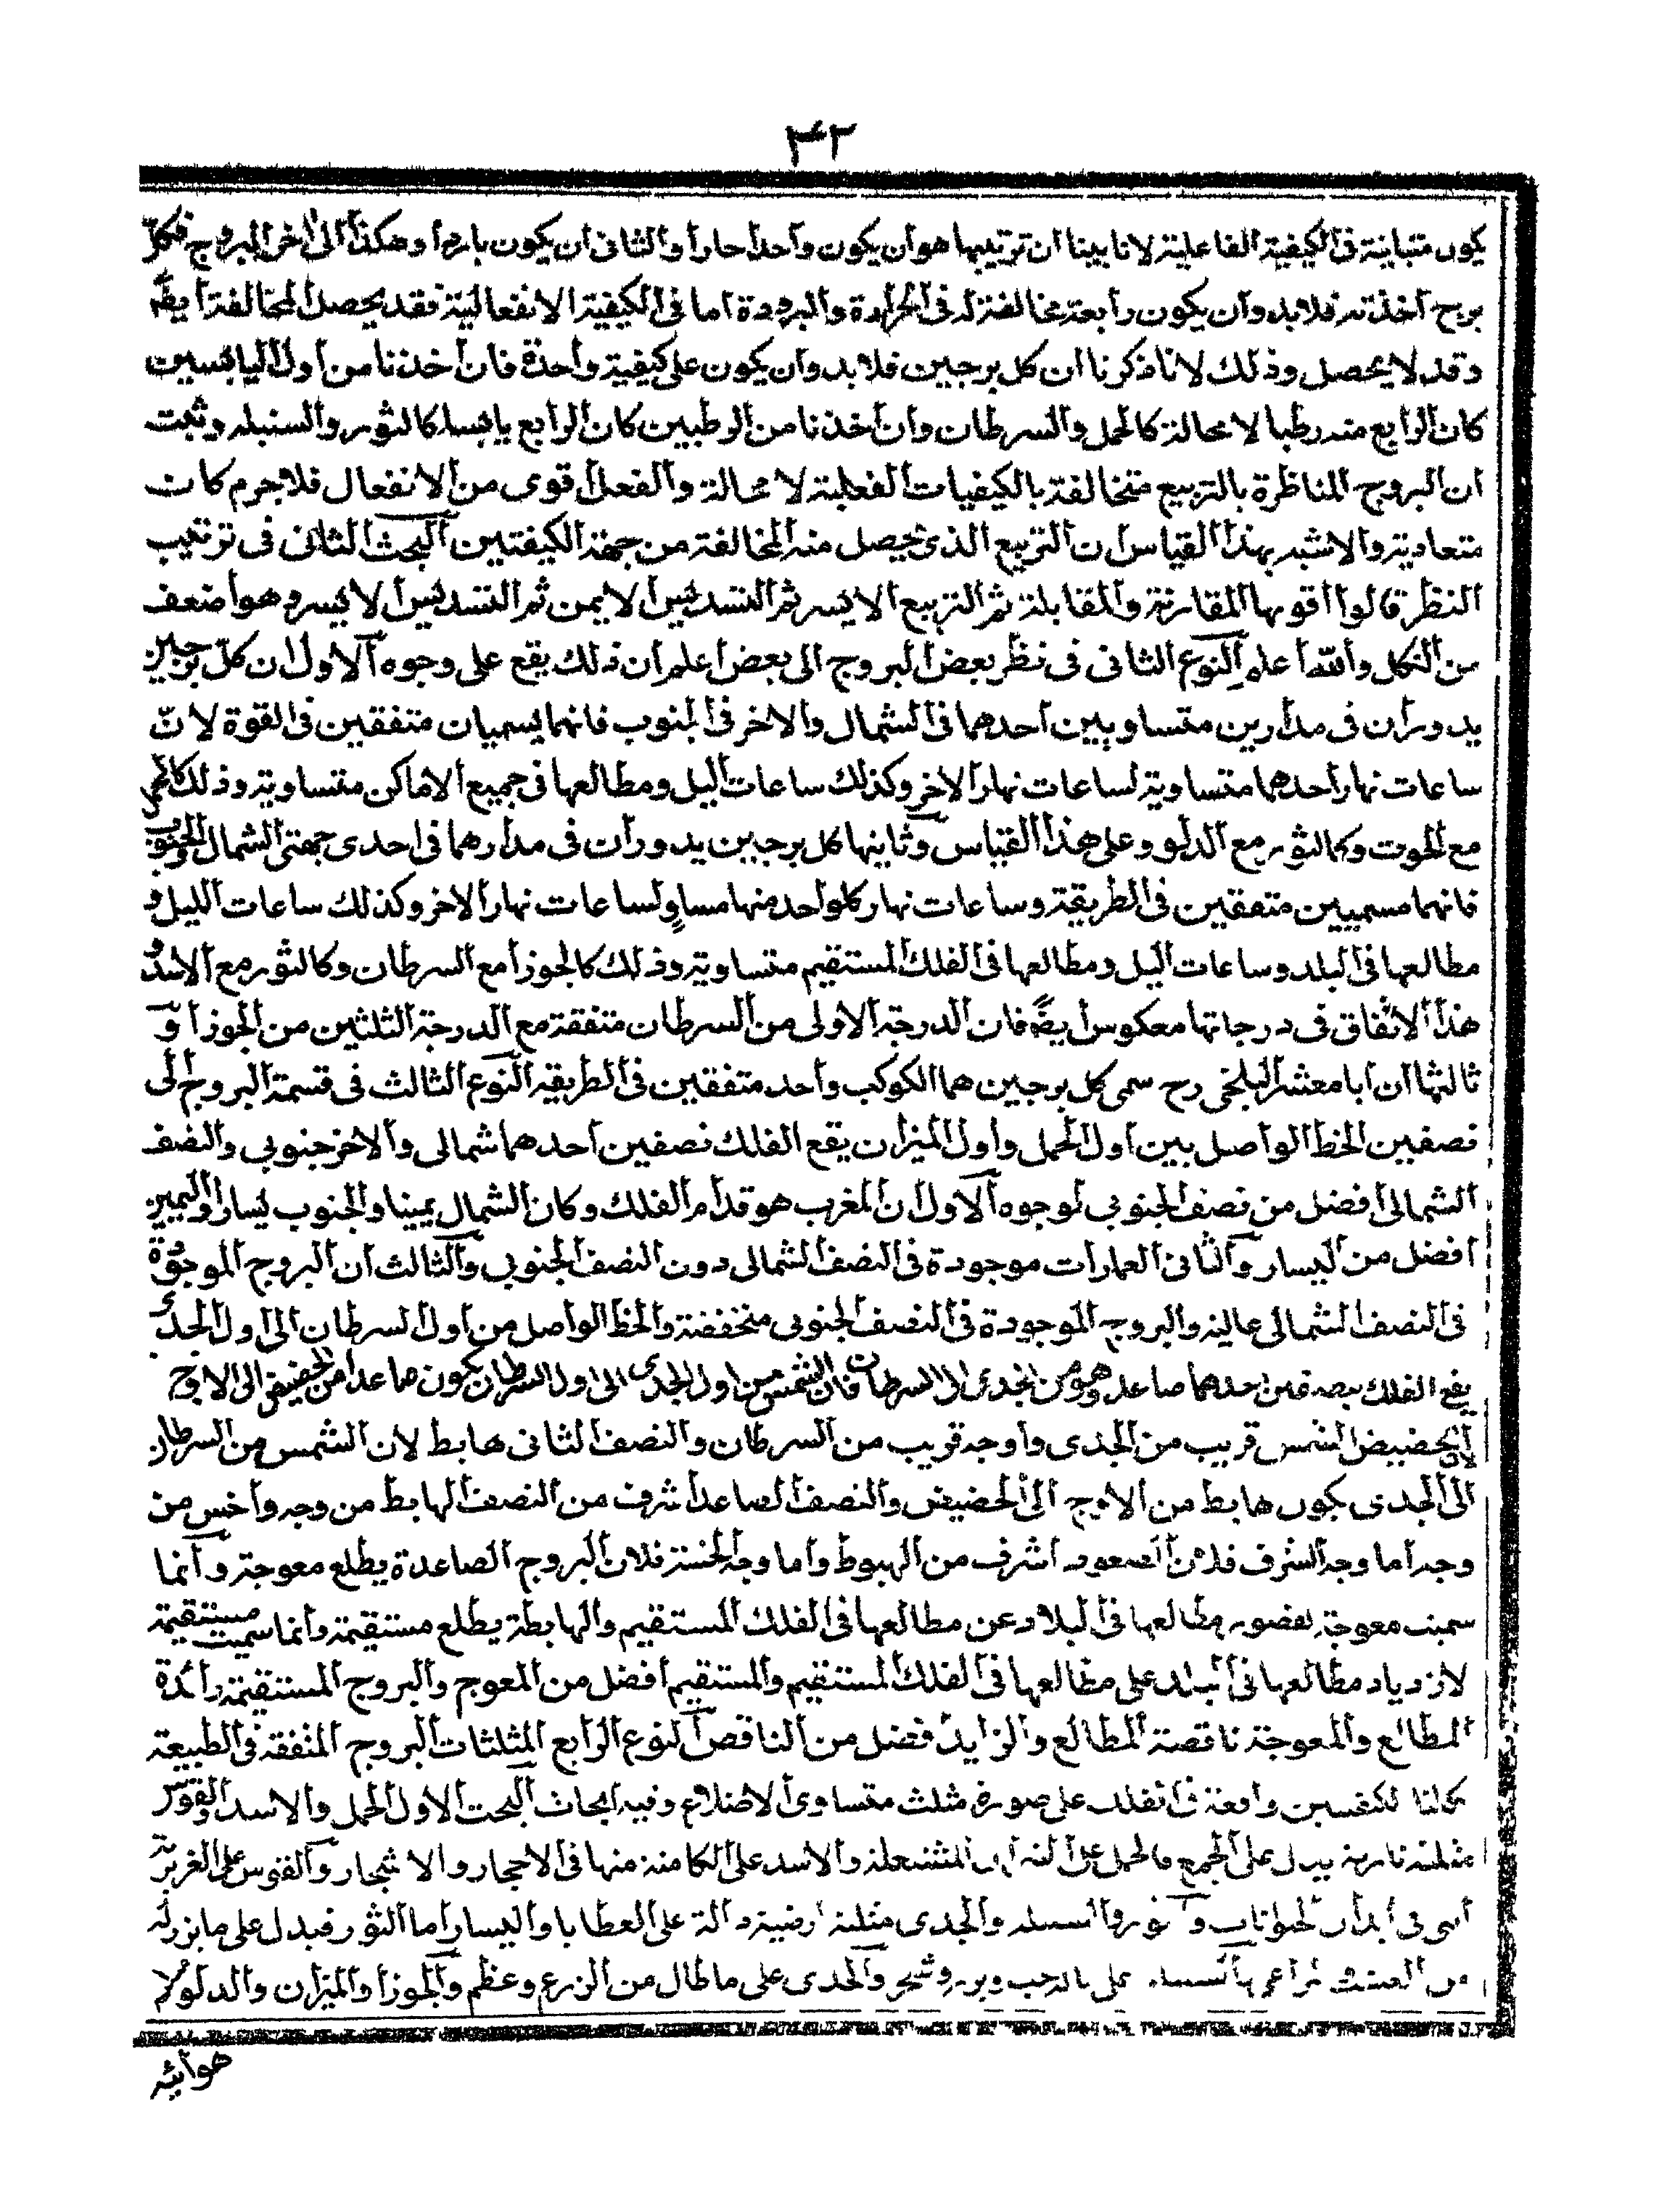 ٣٢
يكون متباينة فى الكيفية الفاعلية لانا بينا ان ترتيبها هو ان يكون واحدا حارا والثانى ان يكون باردا وهكذا الى اخر البروج فكل
برج اخذته فلابد وان يكون رابعة مخالفة له فى الحرارة والبرودة اما فى الكيفية الانفعالية فقد يحصل المخالفة ايضا
وقد لا يحصل وذلك لانا ذكرنا ان كل برجين فلا بد وان يكون على كيفية واحدة فان اخذنا من اول اليابسين
كان الرابع منه رطبا لا محالة كالحمل والسرطان وان اخذنا من الرطبين كان الرابع يابسا كالثور والسنبله وثبت
ان البروج المناظرة بالتربيع متخالفة بالكيفيات الفعلية لا محالة والفعل اقوى من الانفعال فلاجرم كانت
متعادية والاشبه بهذا القياس ان التربيع الذى يحصل منه المخالفة من جهة الكيفتين البحث الثانى فى ترتيب
النظر قالوا اقوبها المقارنة والمقابلة ثم التربيع الايسر ثم التسديس الايمن ثم التسديس الايسر وهو اضعف
من الكل والله اعلم النوع الثانى فى نظر بعض البروج الى بعض اعلم ان ذلك يقع على وجوه الاول ان كل برجين
يدوران فى مدارين متساويين احدهما فى الشمال والاخر فى الجنوب فانهما يسميان متفقين فى القوة لان
ساعات نهار احدهما متساوية لساعات نهار الاخر وكذلك ساعات اليل ومطالعها فى جميع الاماكن متساوية وذلك كالحمل
مع الحوت وكالثور مع الدلو وعلى هذا القياس وثانيها كل برجين يدوران فى مدارهما فى احدى جهتى الشمال والجنوب
فانهما مسميين متفقين فى الطريقة وساعات نهار كلواحد منها مساو لساعات نهار الاخر وكذلك ساعات الليل و
مطالعها فى البلد وساعات اليل ومطالعها فى الفلك المستقيم متساوية وذلك كالجوزا مع السرطان وكالثور مع الاسد و
هذا الاتفاق فى درجاتها معكوس ايضا فان الدرجة الاولى من السرطان متفقة مع الدرجة الثلثين من الجوزا و
ثالثها ان ابا معشر البلخى رح سمى كل برجين هما الكوكب واحد متفقين فى الطريقه النوع الثالث فى قسمة البروج الى
نصفين الخط الواصل بين اول الحمل واول الميزان يقع الفلك نصفين احدهما شمالى والاخر جنوبى والنصف
الشمالى افضل من نصف الجنوبى لوجوه الاول ان المغرب هو قدام الفلك وكان الشمال يمينا والجنوب يسارا واليمين
افضل من اليسار والثانى العمارات موجودة فى النصف الشمالى دون النصف الجنوبى والثالث ان البروج الموجودة
فى النصف الشمالى عالية والبروج الموجودة فى النصف الجنوبى منخفضة والخط الواصل من اول السرطان الى اول الجدى
يقع الفلك بنصفين احدهما صاعد وهو من الجدى الى السرطان فان الشمس من اول الجدى الى اول السرطان يكون صاعدا من الحضيض الى الاوج
لان الحضيض الشمس قريب من الجدى واوجه قريب من السرطان والنصف الثانى هابط لان الشمس من السرطان
الى الجدى يكون هابط من الاوج الى الحضيض والنصف الصاعد اشرف من النصف الهابط من وجه واخس من
وجه اما وجه الشرف فلان الصعود اشرف من الهبوط واما وجه الخسة فلان البروج الصاعدة يطلع معوجة وانما
سميت معوجة لقصور مطالعها فى البلاد عن مطالعها فى الفلك المستقيم والهابطة يطلع مستقيمة وانما سميت مستقيمة
لازدياد مطالعها فى البلد على مطالعها فى الفلك المستقيم والمستقيم افضل من المعوج والبروج المستقيمة زائدة
المطالع والمعوجة ناقصة المطالع والزايد فضل من الناقص النوع الرابع المثلثات البروج المتفقه فى الطبيعة
واقعة فى الفلك على صورة مثلث متساوى الاضلاع وفيه ابحاث البحث الاول الحمل والاسد والقوس
مثلثة نارية يدل على الجمع فالحمل على النيران المشتعلة والاسد على الكامنة منها فى الاحجار والاشجار والقوس على الغريزية
التى فى ابدان الحيوانات والثور والسنبله والجدى مثلثة ارضية دالة على العطايا واليسار اما الثور فيدل على ما بزر له
من العشب على ما طال من الزرع وعظم والجوزا والميزان والدلو
هوائية